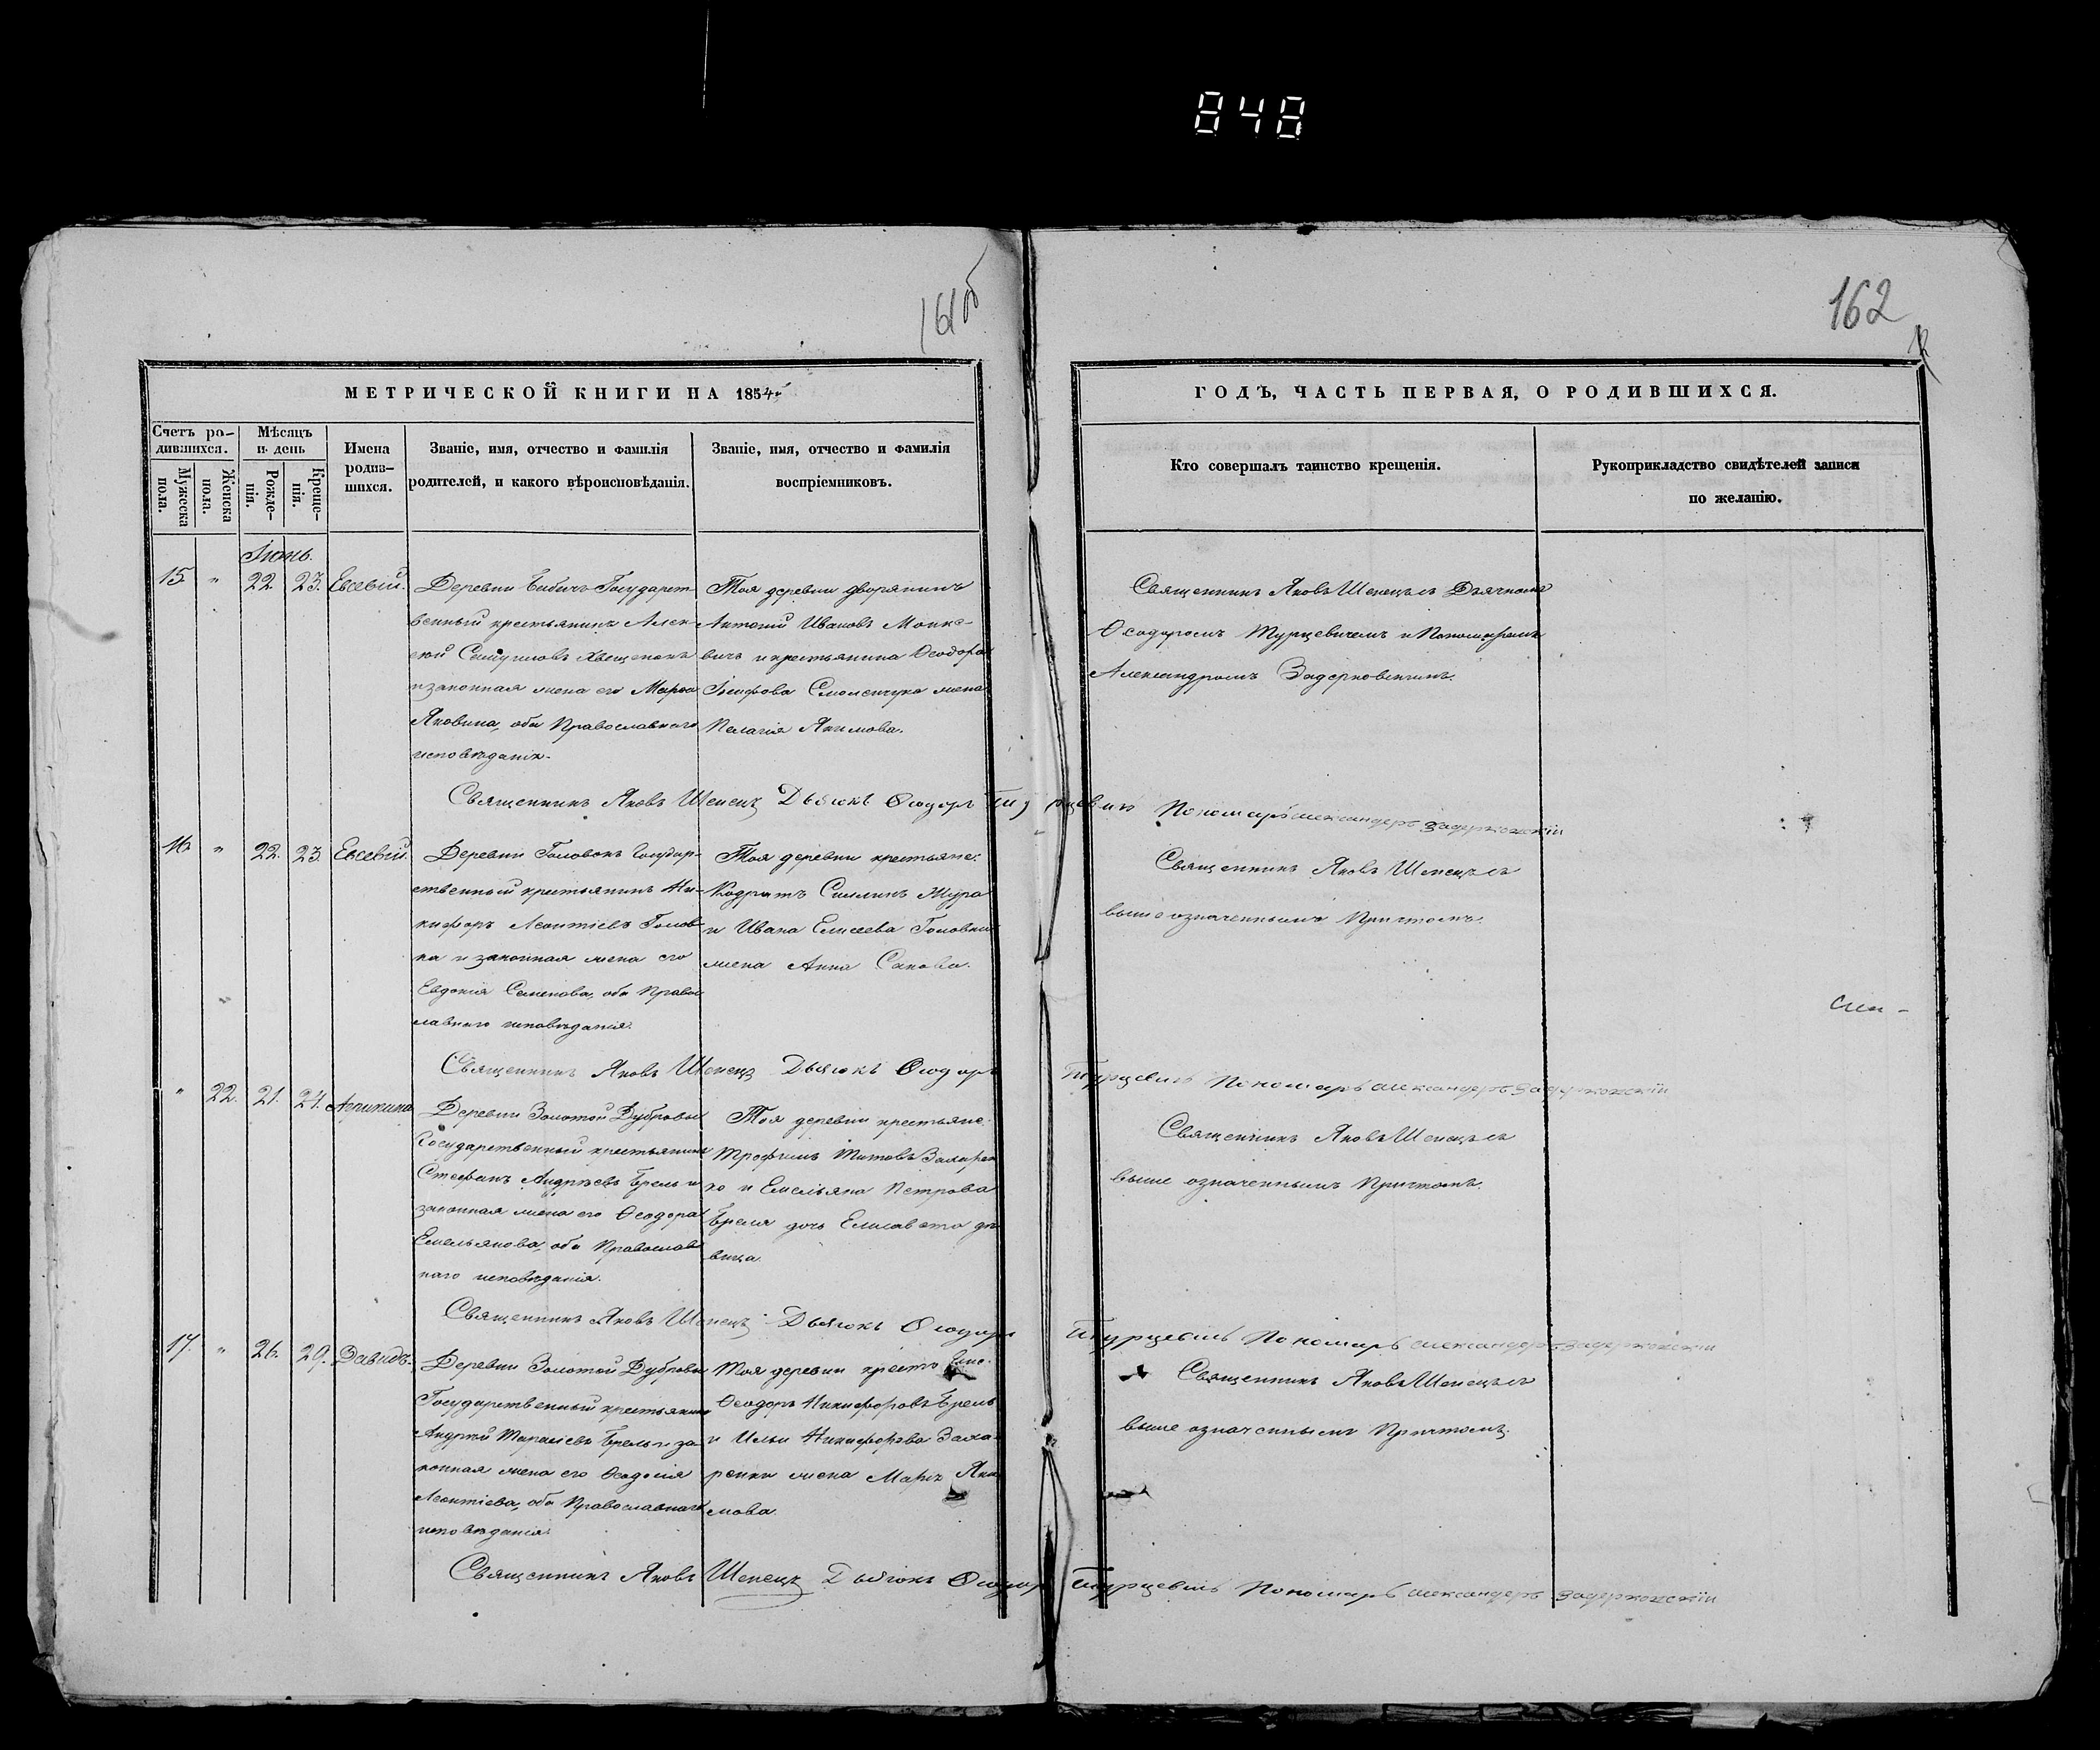 848
161об
162
МЕТРИЧЕСКОЙ КНИГИ НА 1854й
ГОДЪ, ЧАСТЬ ПЕРВАЯ, О РОДИВШИХСЯ.
Счетъ ро-
дившихся.
Мужеска
пола.
Женска
пола.
Мѣсяцъ
и день
Рожде-
нія.
Креще-
нія.
Имена
родив-
шихся.
Званіе, имя, отчество и фамилія
родителей, и какого вѣроисповѣданія.
Званіе, имя, отчество и фамилія
воспріемниковъ.
Кто совершалъ таинство крещенія.
Рукоприкладство свидѣтелей записи
по желанію.
Іюнь.
15 " 22. 23. Евсевій.
Деревни Бибичъ Государст-
венный крестьянинъ Алек-
сей Самуиловъ
и законная жена его Марѳа
Яковина, оба Православнаго
исповѣданія.
Тоя деревни дворянинъ
Антоній Ивановъ Монке-
вичъ и крестьянина Ѳеодора
Іосифова Смоленчука жена
Пелагія Якимова.
Священникъ Яковъ Шепецъ съ Дьячкомъ
Ѳеодоромъ Турцевичемъ и Пономаремъ
Александромъ Задерковскимъ.
Священникъ Яковъ Шепецъ Дьячокъ Ѳеодоръ Турцевичъ Пономарь Александеръ Задерковскій
16. " 22. 23. Евсевій.
Деревни Головокъ Государ-
ственный крестьянинъ Ни-
кифоръ Леонтіевъ Голов-
ка и законная жена его
Евдокія Семенова, оба Право-
славнаго исповѣданія.
Тоя деревни крестьяне:
Кодратъ Жура
и Ивана Елисеева Головки
жена Анна Савова.
Священникъ Яковъ Шепецъ съ
вышеозначеннымъ Причтомъ.
Священникъ Яковъ Шепецъ Дьячокъ Ѳеодоръ Турцевичъ Пономарь Александеръ Задерковскій
" 22. 21. 24. Агрипина
Деревни Золотой Дубровы
Государственный крестьянинъ
Стефанъ Андреевъ Брель и
законная жена его Ѳеодора
Емельянова, оба Православ-
наго исповѣданія.
Тоя деревни крестьяне:
Трофимъ Титовъ Захарен-
ко и Емельяна Петрова
Бреля дочь Елисавета дѣ-
вица.
Священникъ Яковъ Шепецъ съ
выше означеннымъ Причтомъ.
Священникъ Яковъ Шепецъ Дьячокъ Ѳеодоръ Турцевичъ Пономарь Александеръ Задерковскій
17. " 26. 29. Давидъ.
Деревни Золотой Дубровы
Государственный крестьянинъ
Андрей Тарасіевъ Брель и за-
конная жена его Ѳеодосія
Леонтіева, оба Православнаго
исповѣданія.
Тоя деревни крестьяне:
Ѳеодоръ Никифоровъ Брель
и Ильи Никифорова Заха-
ренки жена Марія Яки-
мова.
Священникъ Яковъ Шепецъ съ
выше означеннымъ Причтомъ.
Священникъ Яковъ Шепецъ Дьячокъ Ѳеодоръ Турцевичъ Пономарь Александеръ Задерковскій